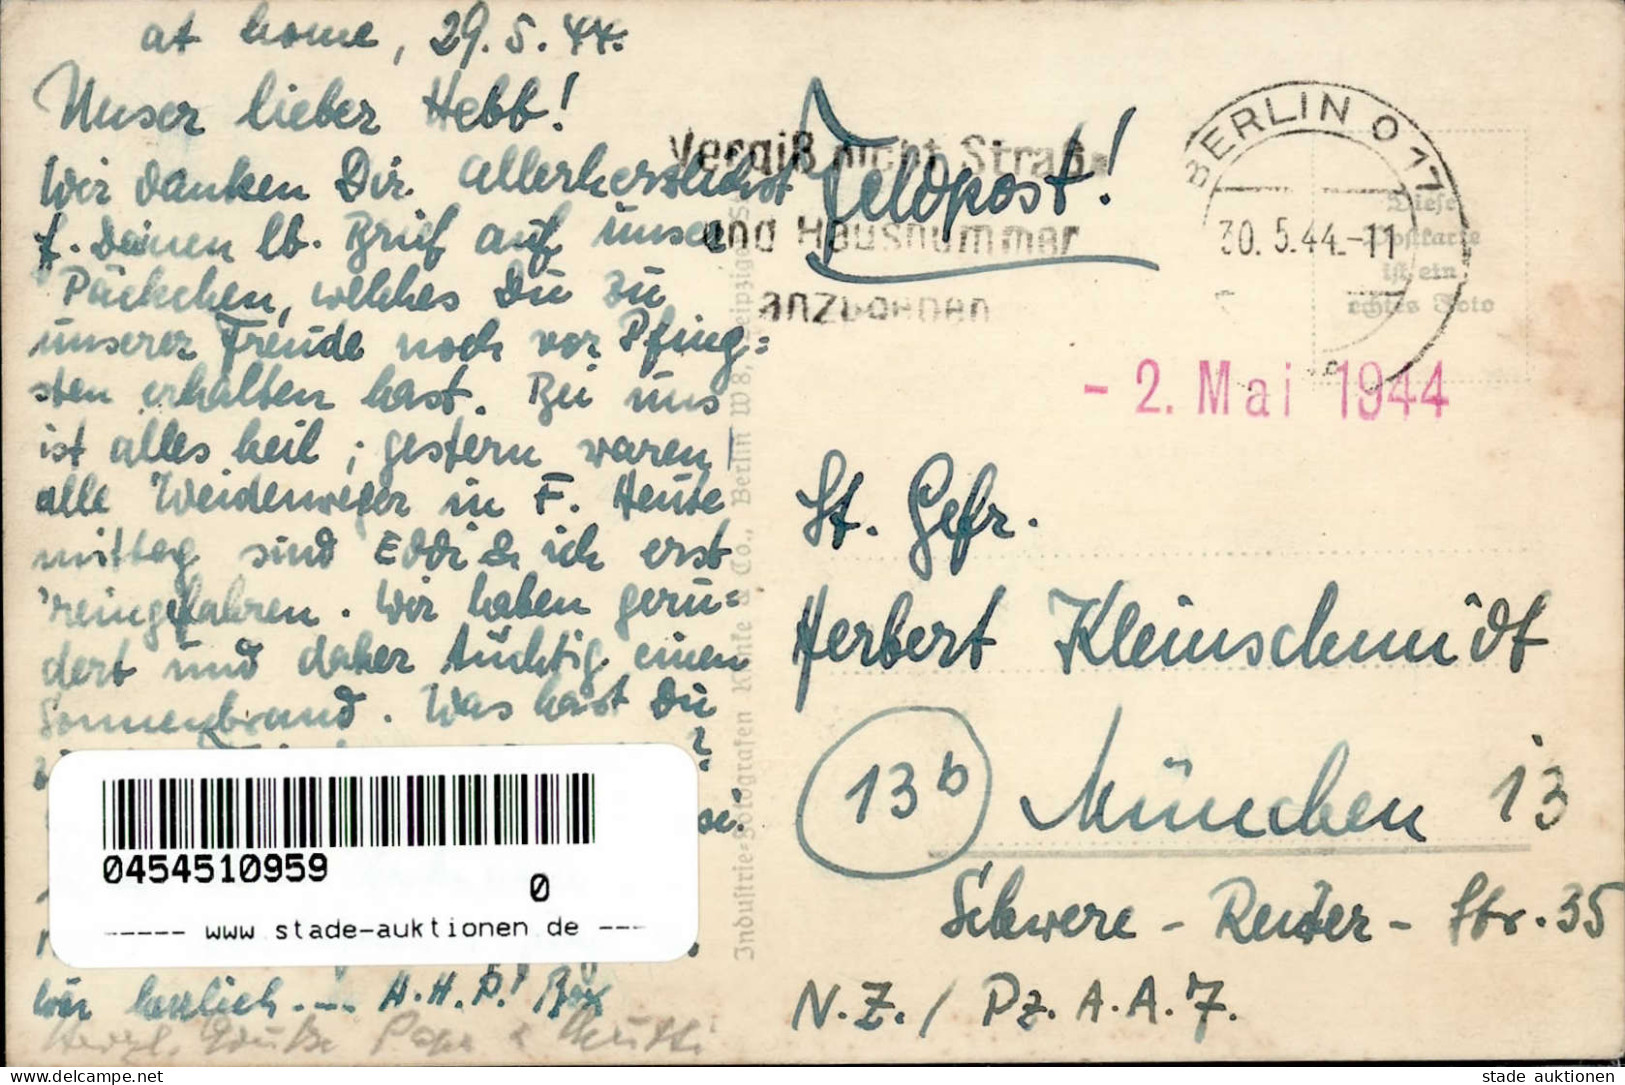 at home, 29.5.44.
Unser lieber Hebb!
Wir danken Dir allerherzlichst
f. Deinen lb. Brief auf unser
Päckchen, welches Du zu
unserer Freude noch vor Pfing=
sten erhalten hast. Bei uns
ist alles heil; gestern waren
alle Weidenweger in F. Heute
mittag sind Eddi & ich erst
'reingefahren. Wir haben geru=
dert und daher tüchtig einen
Sonnenbrand. Was hast Du
?
wir herzlich --- H.H.P.!
Herzl. Grüße Papa & Mutti
Industrie-Fotografen Klinke & Co., Berlin W 8, Leipziger
Vergiß nicht Straße
und Hausnummer
anzugeben
Feldpost!
BERLIN O 17
30.5.44.-11
Diese
Postkarte
ist ein
echtes Foto
- 2. Mai 1944
St. Gefr.
Herbert Kleinschmidt
13b München 13
Schwere-Reiter-Str. 35
N.Z./Pz.A.A.7.
0454510959
0
----- www.stade-auktionen.de ---
stade auktionen
delcampe.net